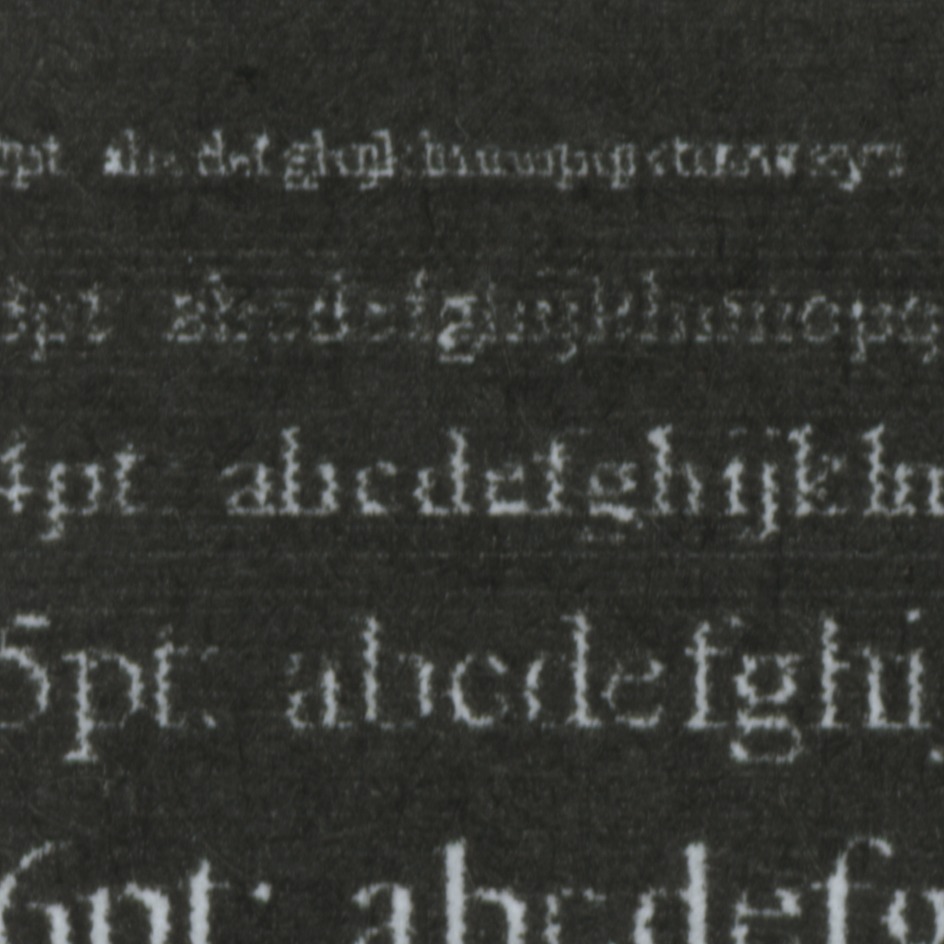 pt abcdefghijklmnopqrstuvwxyz
3pt abcdefghijklmnopq
4pt abcdefghijklm
5pt: abcdefghij
6pt: abcdefg